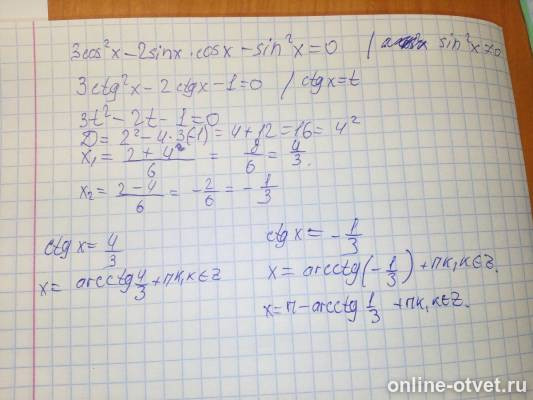 3cos²x-2sinx·cosx-sin²x=0 / sin²x≠0
3ctg²x-2ctgx-1=0 / ctgx=t
3t²-2t-1=0
D=2²-4·3(-1)=4+12=16=4²
x₁=(2+4)/6=8/6=4/3.
x₂=(2-4)/6=-2/6=-1/3
ctgx=4/3
x=arcctg4/3+πk,k∈Z
ctgx=-1/3
x=arcctg(-1/3)+πk,k∈Z.
x=π-arcctg1/3+πk,k∈Z.
online-otvet.ru